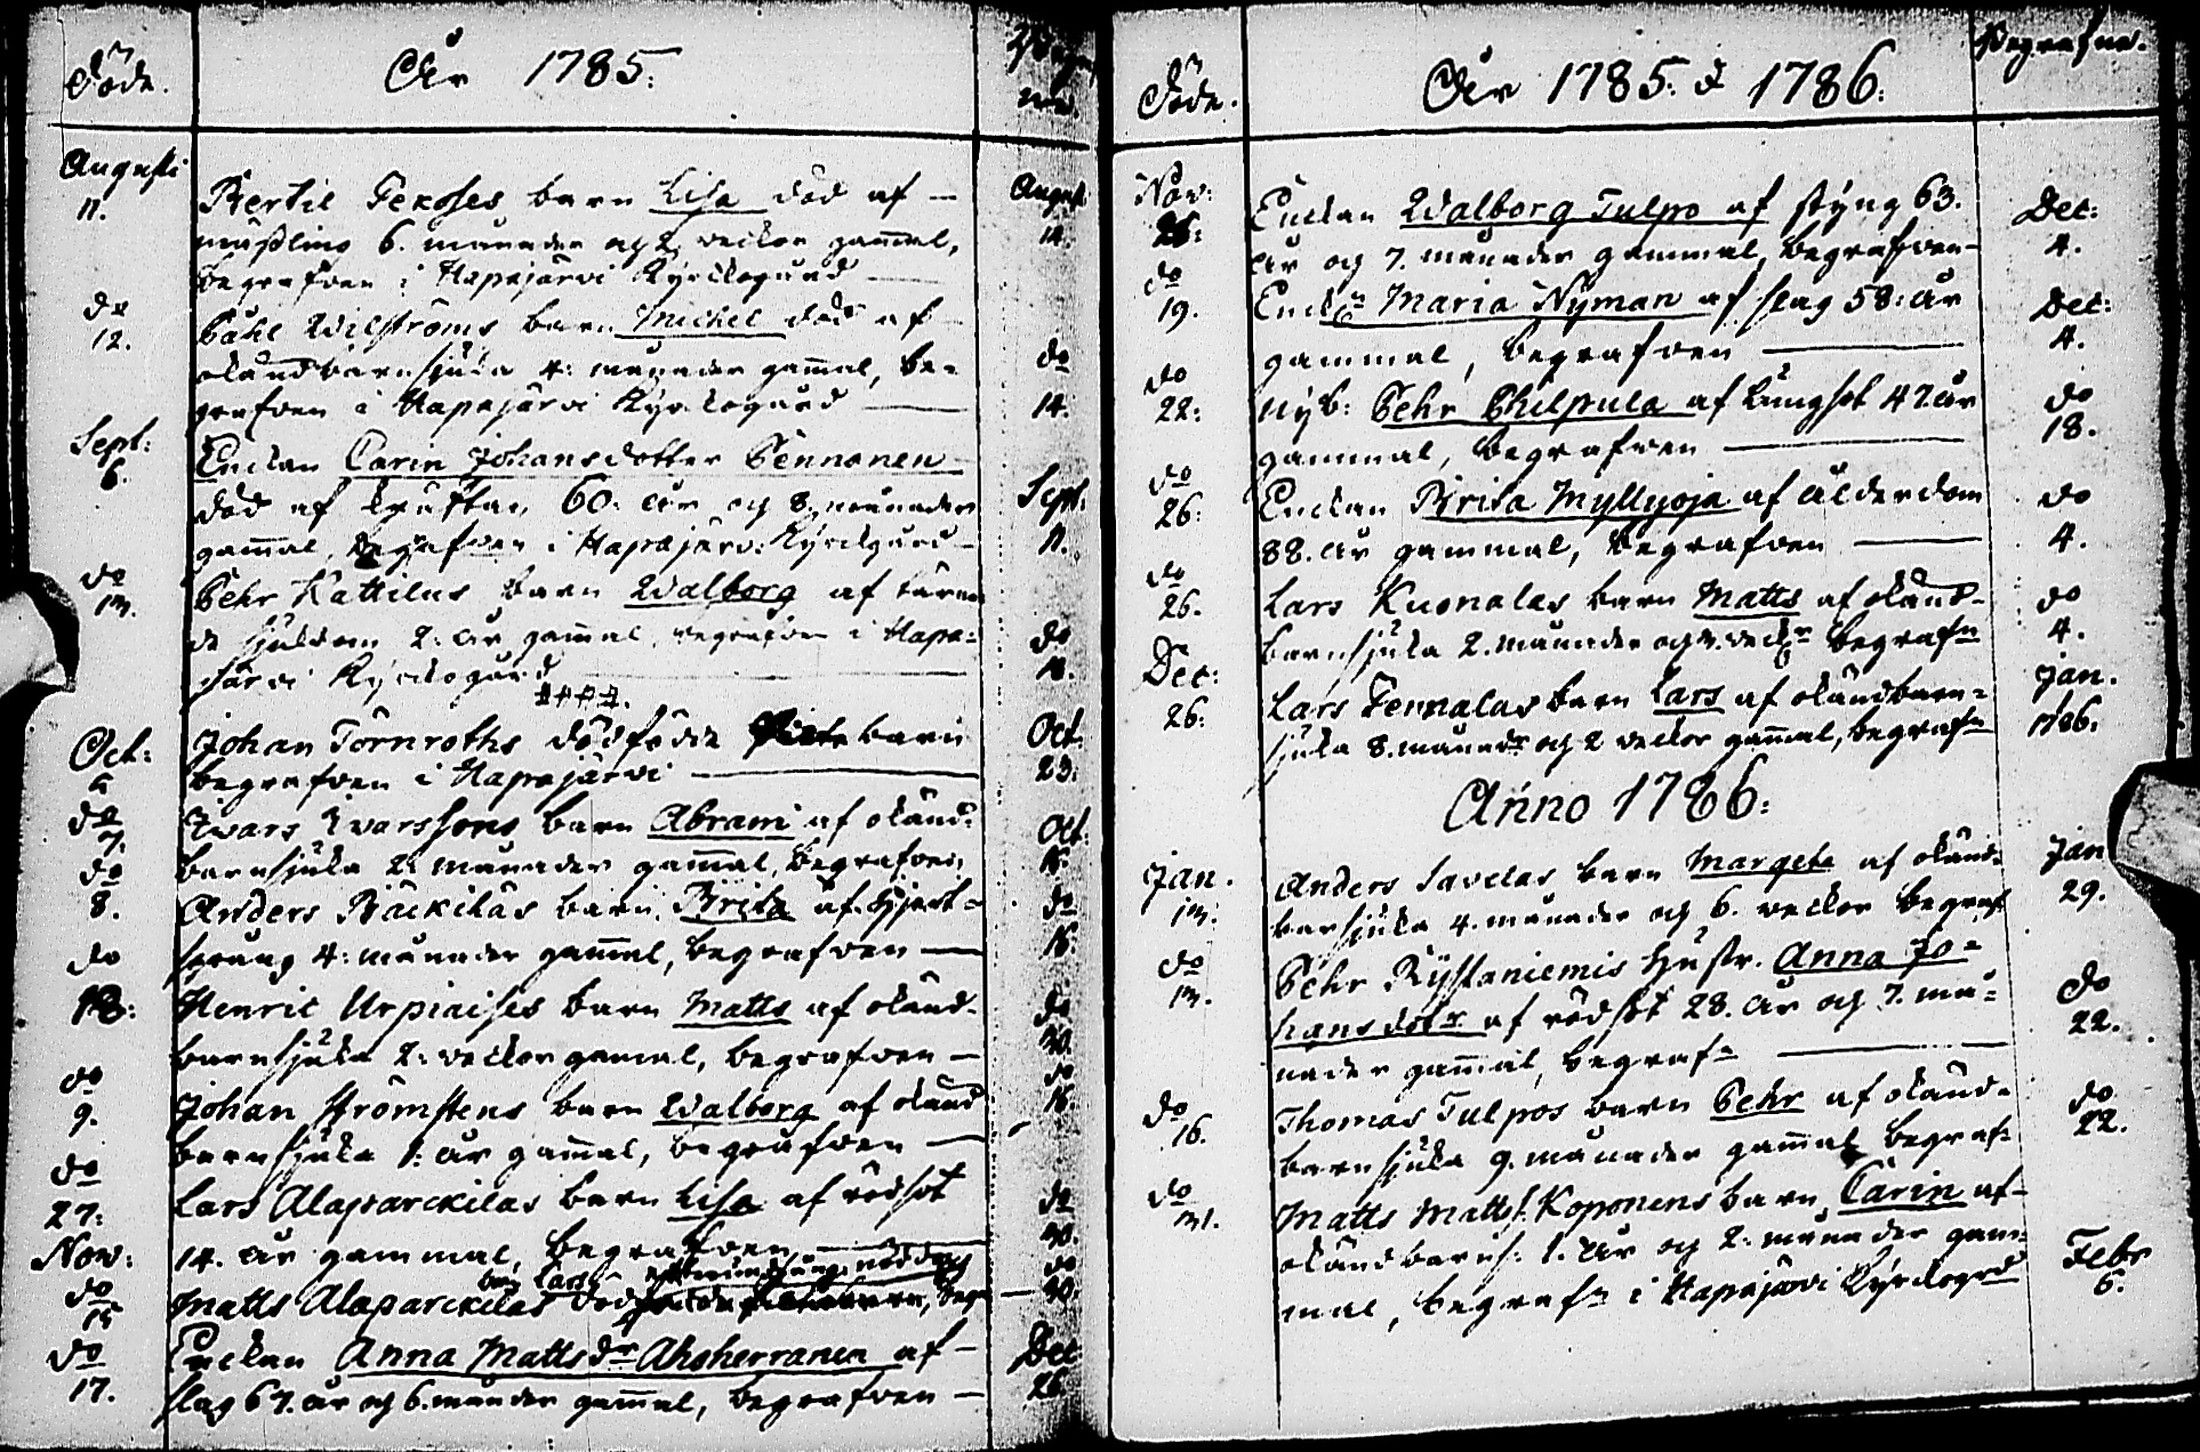 Döde.
År 1785.
Augusti
11.
Bertil Pekoses barn Lisa död af
mäßling 6. månader och 2. veckor gam̄al,
begrafven i Hapajärvi Kyrckogård
August:
14.
do
12.
Påhl Wilströms barn Michel död af
okänd barnsjuka 4: månader gam̄al, be-
grafven i Hapajärvi Kyrckogård
do
14.
Sept:
6.
Enckan Carin Johansdotter Pennanen
död af 60. år och 8. månader
gam̄al, begrafven i Hapajärvi Kyrckgård
Sept:
11.
do
13.
Pehr Kattilus barn Walborg af tären
de sjukdom 2. år gam̄al, begrafven i Hapa=
järvi Kyrckogård
do
18.
Oct:
Johan Törnroths dödfödde barn
begrafven i Hapajärvi
Oct.
23.
do
7.
Ivars Ivarssons barn Abram af okänd
barnsjuka 2 månader gam̄al, begrafven
Oct.
do
8.
Anders Räckiläs barn Brita af hjert=
språng 4: månader gam̄al, begrafven
do
16.
do
Henric Urpiaises barn Matts af okänd-
barnsjuka 2: veckor gam̄al, begrafven
do
30.
do
9.
Johan Strömstens barn Walborg af okänd
barnsjuka 1: år gam̄al, begrafven
do
16.
do
27.
Lars Alaparckilas barn Lisa af rödsot
14. år gammal, begrafven
do
30.
Nov:
do
Matts Alaparckilas barn Lars död
do
30.
do
17.
Enckan Anna Mattsdr Ahoherranen af
slag 67. år och 6. månader gam̄al, begrafven
Dec
26.
Döde.
År 1785. & 1786.
Begrafne.
Nov:
26:
Enckan Walborg Tulpo af styng 63.
år och 7. månader gammal, begrafven
Dec:
4.
do
19.
Enckan Maria Nyman af slag 58: år
gammal, begrafven
Dec:
4.
do
22:
Nyb: Pehr Philpula af lungsot 47. år
gammal, begrafven
do
18.
do
26:
Enckan Brita Myllyoja af ålderdom
88. år gammal, begrafven
do
4.
do
26.
Lars Kuonalas barn Matts af okänd-
barnsjuka 2. månader och veckr begrafn
do
4.
Dec:
26:
Lars Pernalas barn Lars af okänd barn=
sjuka 8. månadr och 2 veckor gam̄al, begrafn
Jan.
1786.
Anno 1786:
Jan.
13.
Anders Savelas barn Margeta af okänd-
barnsjuka 4. månader och 6. veckor begraf
Jan
29.
do
13.
Pehr Rystaniemis hustr. Anna Jo=
hansdotr af rödsot 28. år och 7. må=
nader gam̄al, begrafn
do
22.
do
16.
Thomas Tulpos barn Pehr af okänd-
barnsjuka 9. månader gam̄al begrafn
do
22.
do
31.
Matts Matts: Koponens barn Carin af
okänd barns: 1. år och 2. månader gam=
mal, begrafn i Hapajärvi Kyrckogrd
Febr
6.